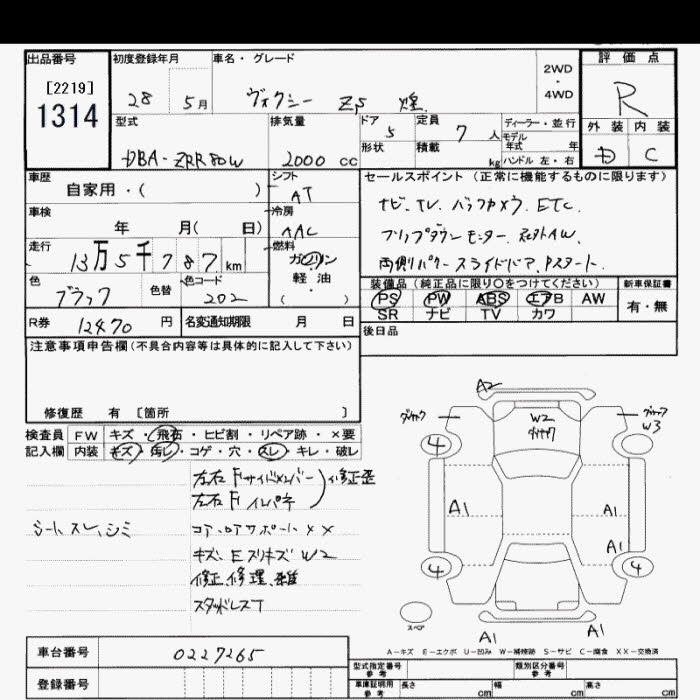 出品番号 初度登録年月 車名・グレード 2WD・4WD 評価点
[2219]
1314
28 5月 ヴォクシー ZS 煌 R
型式 排気量 ドア 5 定員 7人 ディーラー・並行
モデル年式 年
外装 内装
DBA-ZRR80W 2000cc 形状 積載 kg ハンドル 左・右
D C
車歴 自家用・( ) シフト AT
セールスポイント(正常に機能するものに限ります)
車検 年 月( 日) 冷房 AAC
ナビ、TV、バックカメラ、ETC、
フリップダウンモニター、社外AW、
走行 13万5千787km 燃料 ガソリン・軽油・( )
両側パワースライドドア、Pスタート、
色 ブラック 色替 色コード 202
装備品(純正品に限り〇をつけてください) 新車保証書
PS PW ABS エアB AW 有・無
SR ナビ TV カワ
R券 12470円 名変通知期限 月 日
後日品
注意事項申告欄(不具合内容等は具体的に記入して下さい)
修復歴 有 [箇所 ]
検査員記入欄 FW キズ・飛石・ヒビ割・リペア跡・×要
内装 キズ・汚レ・コゲ・穴・スレ・キレ・破レ
左右Fサイドメンバー)修正歪
左右Fインパネ
シートスレ、シミ
コアサポートXX
キズ、EスリキズW2
修正、修理、雑
スタッドレスT
A2
W2
W3
4
4
4
A1
A1
A1
A1
A1
スペア
A-キズ E-エクボ U-凹み W-補修跡 S-サビ C-腐食 XX-交換済
車台番号 0227265
登録番号
型式指定番号 参考 類別区分番号 参考
車庫証明用 参考 長さ cm 幅 cm 高さ cm